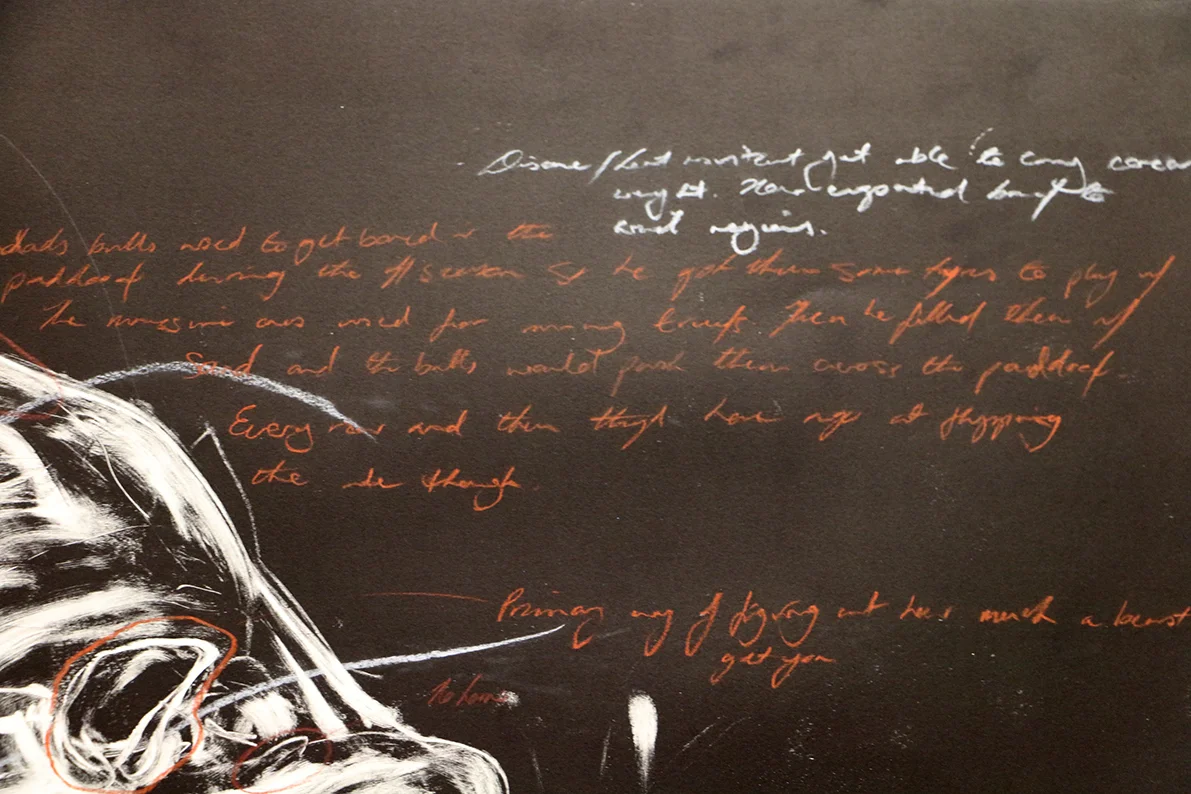 Disease/heat resistant yet able to carry
weight. Now exported
arid regions.
dads bulls used to get bored in the
paddock during the off season so he got them some tyres to play w/
The massive ones used for mining trucks. Then he filled them w/
Sand and the bulls would push them across the paddock.
Every now and then they'd have a go at flipping
the ute though.
Primary way of figuring out how much a beast
get you
No horns